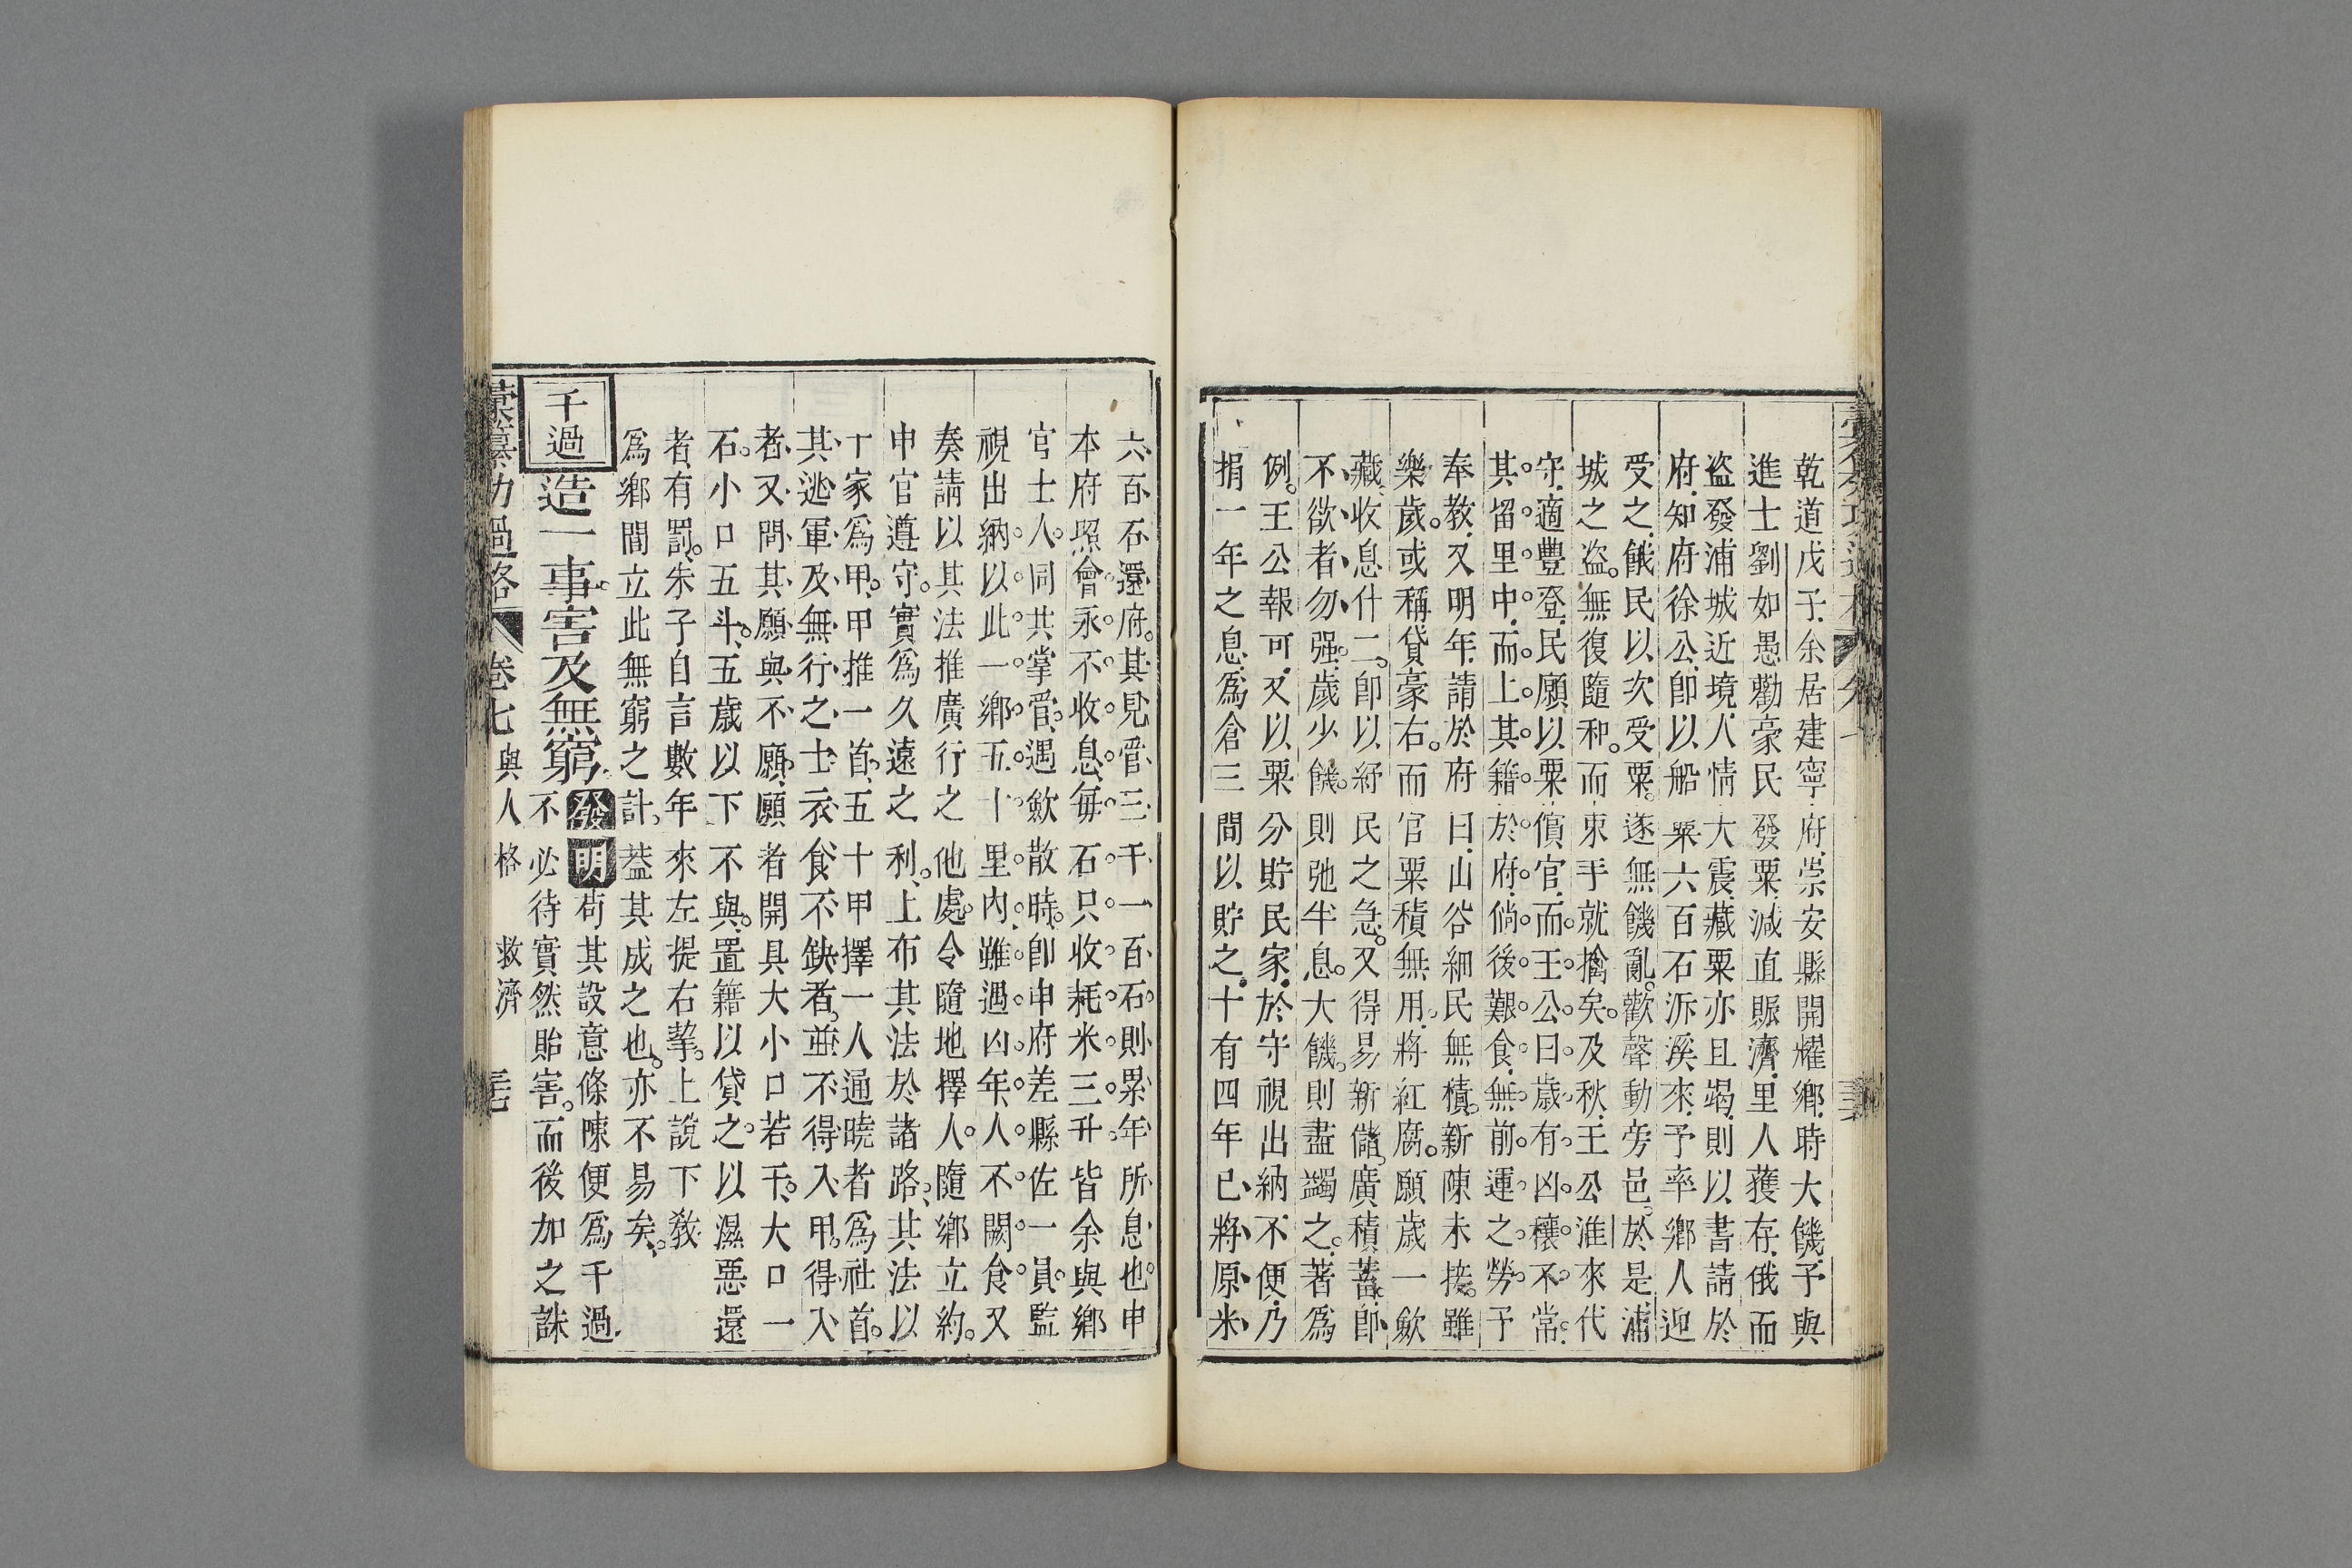 乾道戊子余居建寧府崇安縣開耀鄉時大饑予與
進士劉如愚勸豪民發粟減直賑濟里人獲存俄而
盜發浦城近境人情大震藏粟亦且竭則以書請於
府知府徐公卽以船粟六百石泝溪來予率鄉人迎
受之餓民以次受粟遂無饑亂歡聲動旁邑於是浦
城之盜無復隨和而束手就擒矣及秋王公淮來代
守適豐登民願以粟償官而王公曰歲有凶穰不常
其留里中而上其籍於府倘後艱食無前運之勞予
奉教又明年請於府曰山谷細民無積新陳未接雖
樂歲或稱貸豪右而官粟積無用將紅腐願歲一斂
藏收息什二卽以紓民之急又得易新儲廣積蓄卽
不欲者勿强歲少饑則弛半息大饑則盡蠲之著爲
例王公報可又以粟分貯民家於守視出納不便乃
捐一年之息爲倉三間以貯之十有四年已將原米
六百石還府其見管三千一百石則累年所息也申
本府照會永不收息每石只收耗米三升皆余與鄉
官士人同共掌管遇斂散時卽申府差縣佐一員監
視出納以此一鄉五十里內雖遇凶年人不闕食又
奏請以其法推廣行之他處令隨地擇人隨鄉立約
申官遵守實爲久遠之利上布其法於諸路其法以
十家爲甲甲推一首五十甲擇一人通曉者爲社首
其逃軍及無行之士衣食不缺者並不得入甲得入
者又問其願與不願願者開具大小口若干大口一
石小口五斗五歲以下不與置籍以貸之以濕惡還
者有罰朱子自言數年來左提右挈上說下敎
爲鄉閭立此無窮之計葢其成之也亦不易矣
千過
造一事害及無窮
發明
苟其設意條陳便爲千過
不必待實然貽害而後加之誅
彙纂功過格
卷七
與人格
救濟